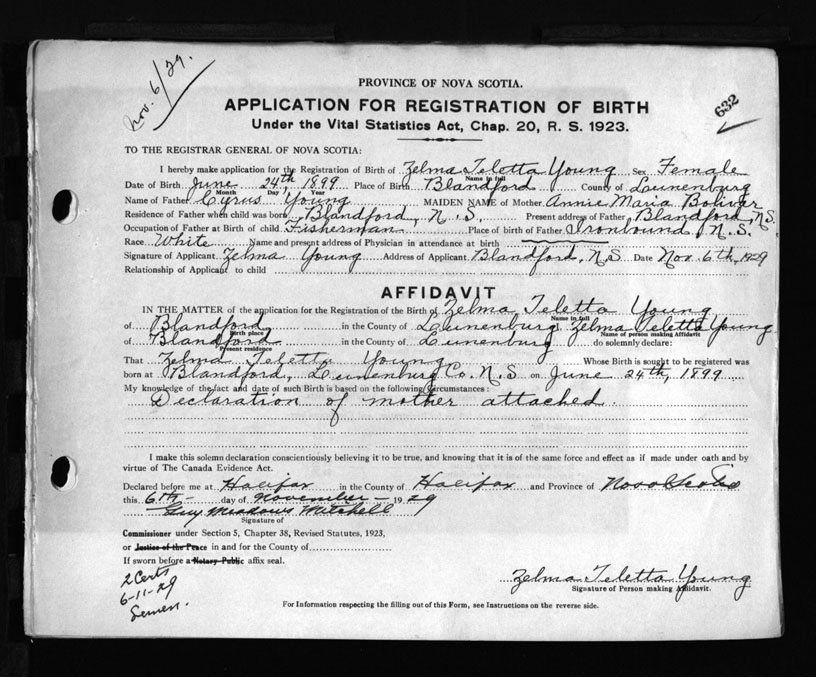 Nov. 6/29.
632
PROVINCE OF NOVA SCOTIA.
APPLICATION FOR REGISTRATION OF BIRTH
Under the Vital Statistics Act, Chap. 20, R. S. 1923.
TO THE REGISTRAR GENERAL OF NOVA SCOTIA:
I hereby make application for the Registration of Birth of Zelma Teletta Young Sex Female
Name in full
Date of Birth June 24th, 1899 Place of Birth Blandford County of Lunenburg
Month Day Year
Name of Father Cyrus Young MAIDEN NAME of Mother Annie Maria Boliver
Residence of Father when child was born Blandford, N.S. Present address of Father Blandford, N.S.
Occupation of Father at Birth of child Fisherman Place of birth of Father Ironbound, N.S.
Race White Name and present address of Physician in attendance at birth
Signature of Applicant Zelma Young Address of Applicant Blandford, N.S Date Nov. 6th, 1929
Relationship of Applicant to child
AFFIDAVIT
IN THE MATTER of the application for the Registration of the Birth of Zelma Teletta Young
Name in full
of Blandford in the County of Lunenburg, Zelma Teletta Young
Birth place Name of person making Affidavit
of Blandford in the County of Lunenburg do solemnly declare:
Present residence
That Zelma Teletta Young Whose Birth is sought to be registered was
born at Blandford, Lunenburg Co. N.S on June 24th, 1899
My knowledge of the fact and date of such Birth is based on the following Circumstances:
Declaration of mother attached.
I make this solemn declaration conscientiously believing it to be true, and knowing that it is of the same force and effect as if made under oath and by
virtue of The Canada Evidence Act.
Declared before me at Halifax in the County of Halifax and Province of Nova Scotia
this 6th day of November 1929
Guy Meadows Mitchell
Signature of
Commissioner under Section 5, Chapter 38, Revised Statutes, 1923,
or Justice of the Peace in and for the County of
If sworn before a Notary Public affix seal.
2 Certs
6-11-29
Zelma Teletta Young
Signature of Person making Affidavit.
For Information respecting the filling out of this Form, see Instructions on the reverse side.